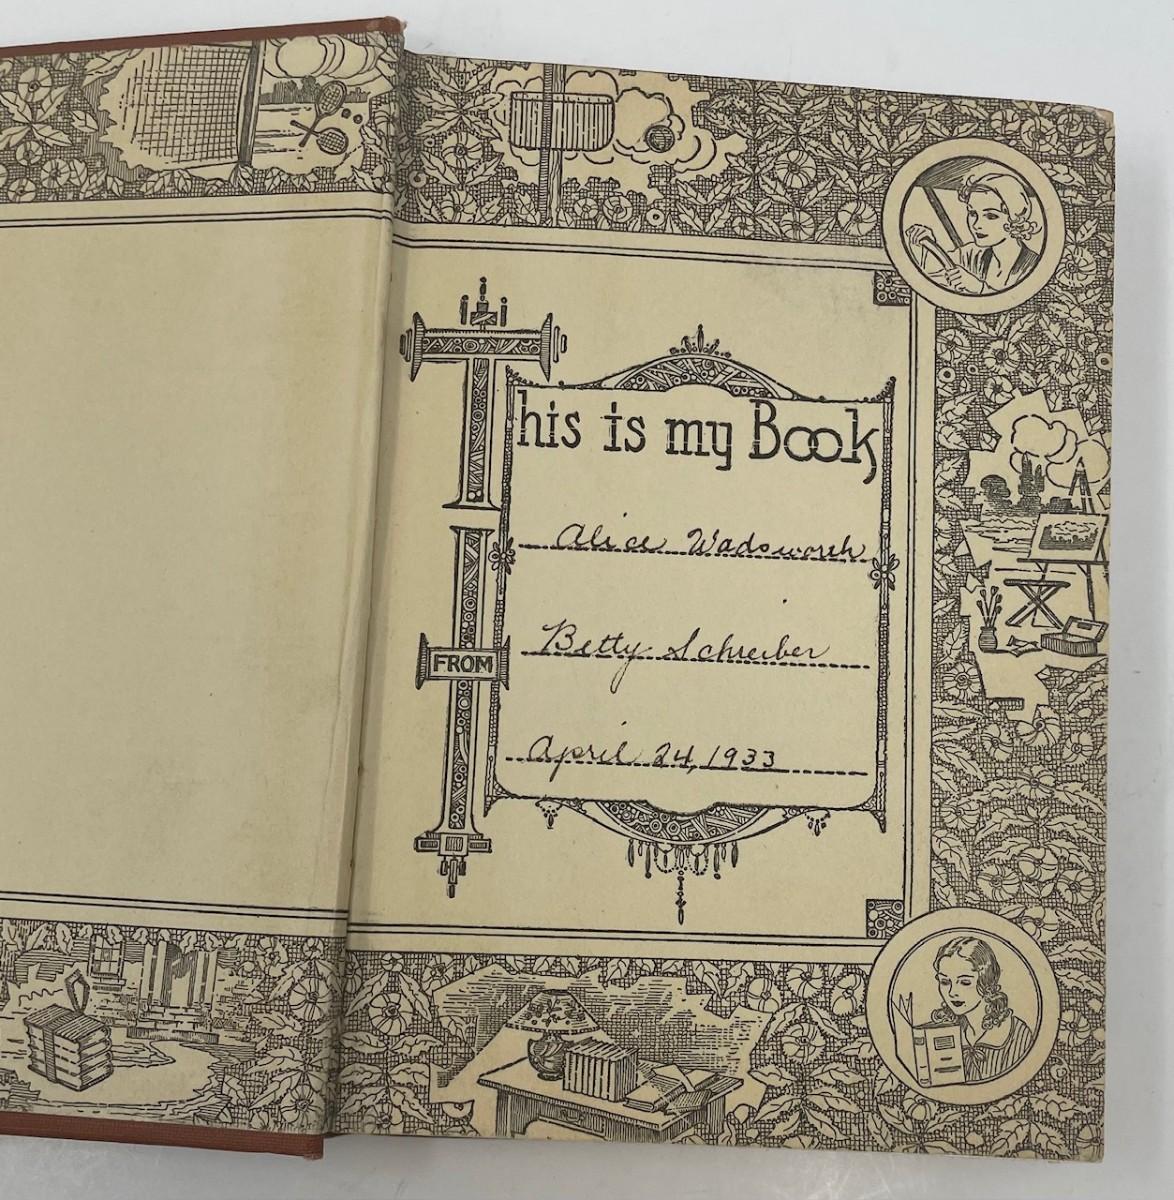 This is my Book
Alice Wadsworth
FROM
Betty Schreiber
April 24, 1933